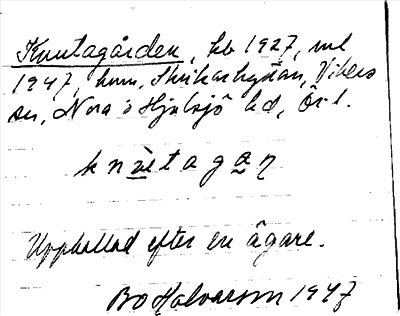 Knutagården, kb 1927, ml
1947, hmn, Skrikarhyttan, Vikers
sn, Nora o Hjulsjö hd, Ör. l.
knùtagan
Uppkallad efter en ägare.
Bo Halvarson 1947